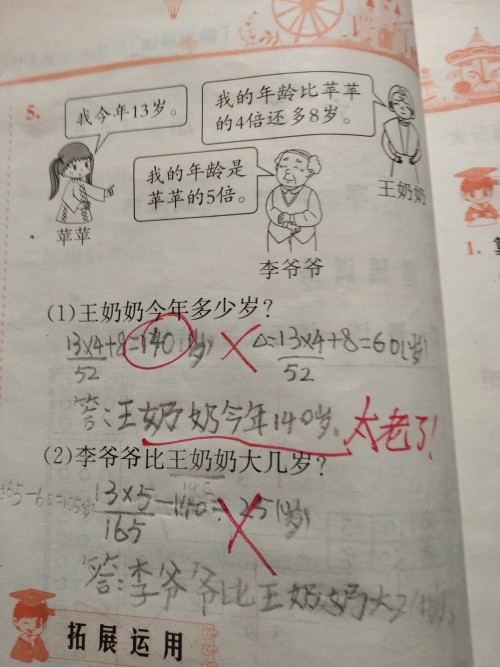 5.
我今年13岁。
我的年龄比苹苹
的4倍还多8岁。
我的年龄是
苹苹的5倍。
苹苹
王奶奶
李爷爷
1.
(1)王奶奶今年多少岁?
13×4+8=140(岁)
52
△=13×4+8=60(岁)
52
答:王奶奶今年140岁。
太老了!
(2)李爷爷比王奶奶大几岁?
13×5-140=25(岁)
165
答:李爷爷比王奶奶大
拓展运用